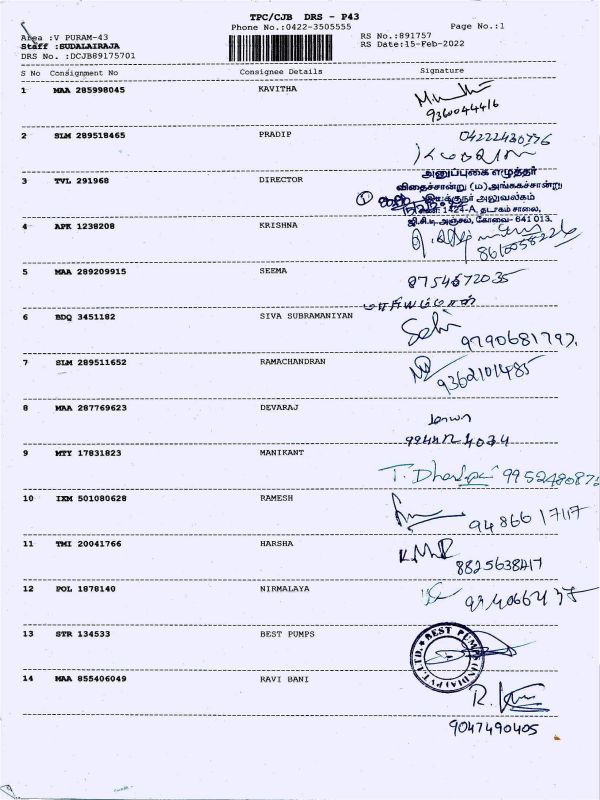 TPC/CJB DRS - P43
Phone No.:0422-3505555 Page No.:1
Area :V PURAM-43 RS No.:891757
Staff :SUDALAIRAJA RS Date:15-Feb-2022
DRS No. :DCJB89175701
S No Consignment No Consignee Details Signature
1 MAA 285998045 KAVITHA
9360044416
2 SLM 289518465 PRADIP 04222430776
3 TVL 291968 DIRECTOR அனுப்புகை எழுத்தர்
விதைச்சான்று (ம) அங்ககச்சான்று
இயக்குநர் அலுவலகம்
1424-A, தடாகம் சாலை,
ஜி.சி.டி அஞ்சல், கோவை- 641 013.
4 APK 1238208 KRISHNA
8610058226
5 MAA 289209915 SEEMA 8754672035
மாரியம்மாள்
6 BDQ 3451182 SIVA SUBRAMANIYAN
9790681797
7 SLM 289511652 RAMACHANDRAN
9362101485
8 MAA 287769623 DEVARAJ
9 MTY 17831823 MANIKANT
10 IXM 501080628 RAMESH
9486617117
11 TMI 20041766 HARSHA K.M.R
8825638417
12 POL 1878140 NIRMALAYA
13 STR 134533 BEST PUMPS BEST PUMPS (INDIA) PVT. LTD.
14 MAA 855406049 RAVI BANI
9047490405